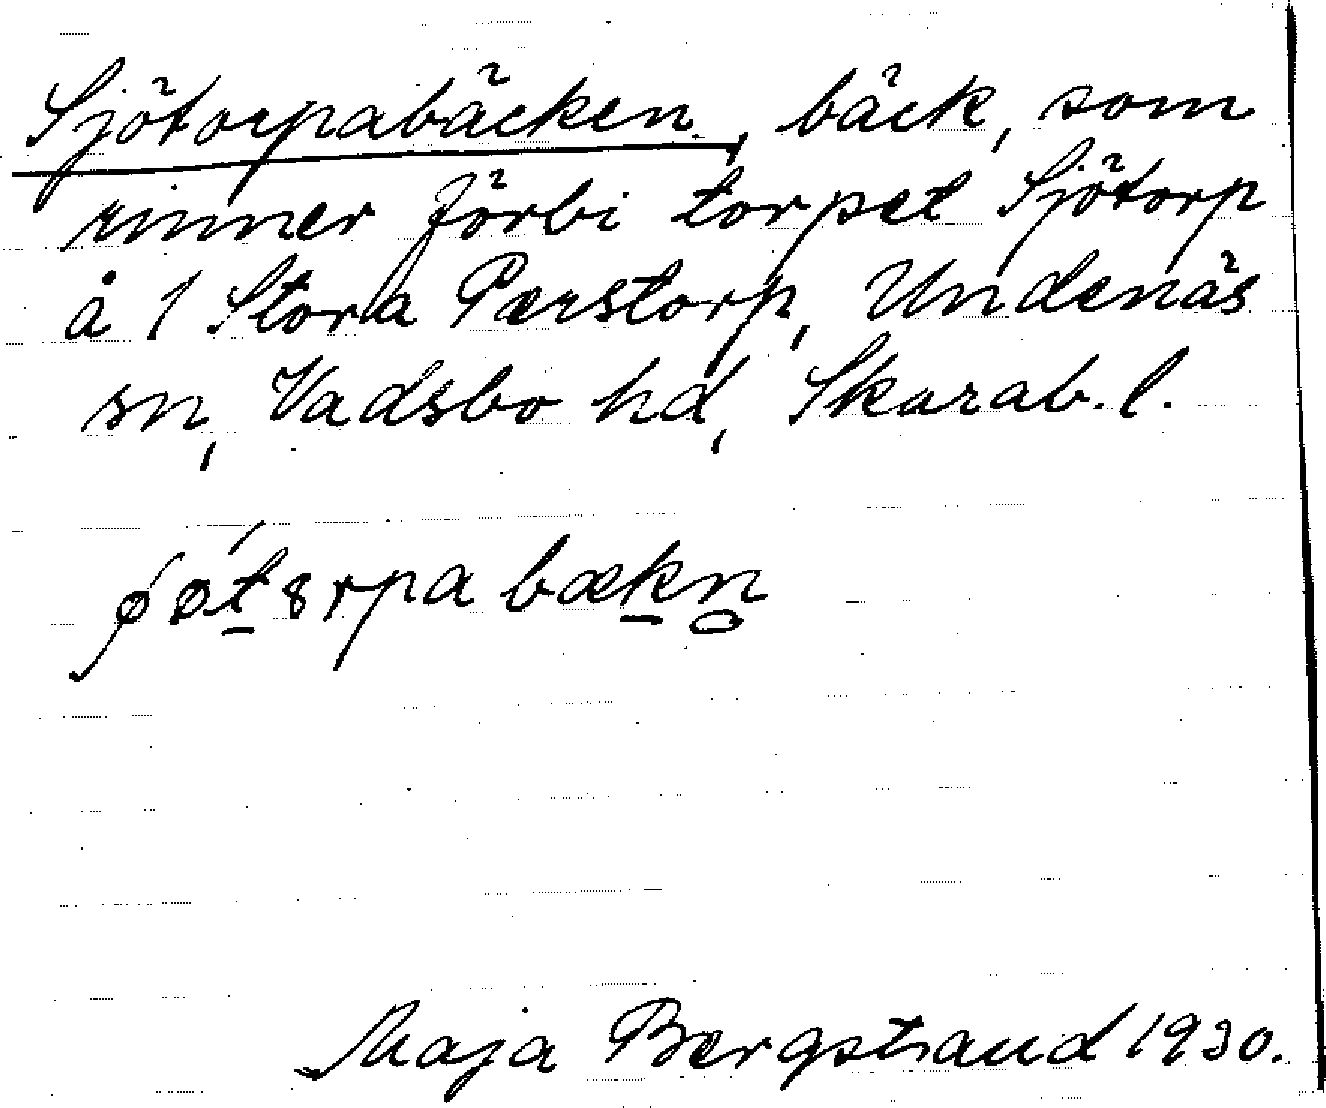 Sjötorpabäcken, bäck, som
rinner förbi torpet Sjötorp
å 1 Stora Perstorp, Undenäs
sn, Vadsbo hd, Skarab. l.
Maja Bergstrand 1930.